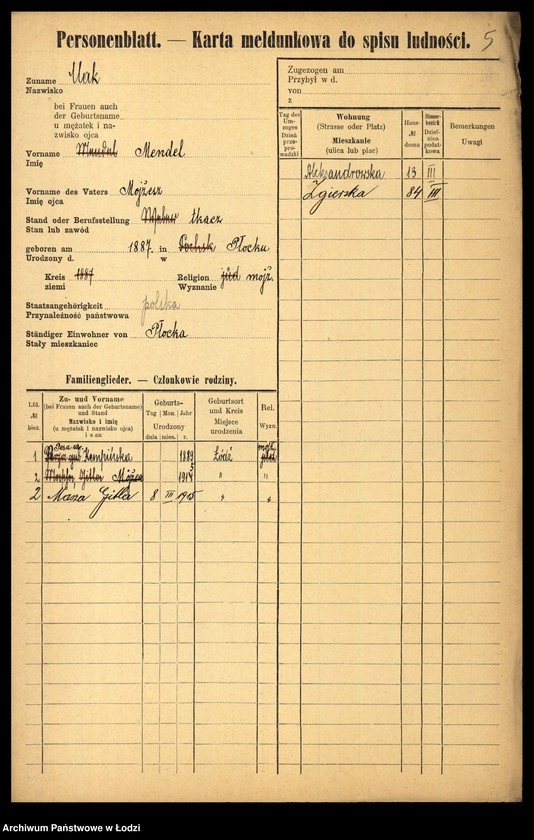 Personenblatt. — Karta meldunkowa do spisu ludności. 5
Zuname Mak
Nazwisko
bei Frauen auch
der Geburtsname
u mężatek i na-
zwisko ojca
Vorname Mendel Mendel
Imię
Vorname des Vaters Mojżesz
Imię ojca
Stand oder Berufsstellung Weber tkacz
Stan lub zawód
geboren am 1887 in Płocku
Urodzony d. w
Kreis 1887 Religion jüd mojż.
ziemi Wyznanie
Staatsangehörigkeit polska
Przynależność państwowa
Ständiger Einwohner von Płocka
Stały mieszkaniec
Zugezogen am
Przybył w d.
von
z
Tag des Um-zuges Dzień prze-pro-wadzki
Wohnung (Strasse oder Platz) Mieszkanie (ulica lub plac)
Haus-№ domu
Steuer-bezirk Dziel-nica podat-kowa
Bemerkungen Uwagi
Aleksandrowska 13 III
Zgierska 84 III
Familienglieder. — Członkowie rodziny.
Lfd. № bież.
Zu- und Vorname (bei Frauen auch der Geburtsname) und Stand Nazwisko i imię (u mężatek i nazwisko ojca) i stan
Geburts- Tag Mon. Jahr Urodzony dnia mies. r.
Geburtsort und Kreis Miejsce urodzenia
Rel. Wyzn.
1 Kempińska 1889 Łódź mojż. jüd
2 Gitla Mojżesz 1914 5 " "
2 Masza Gitla 8 III 1915 " "
Archiwum Państwowe w Łodzi